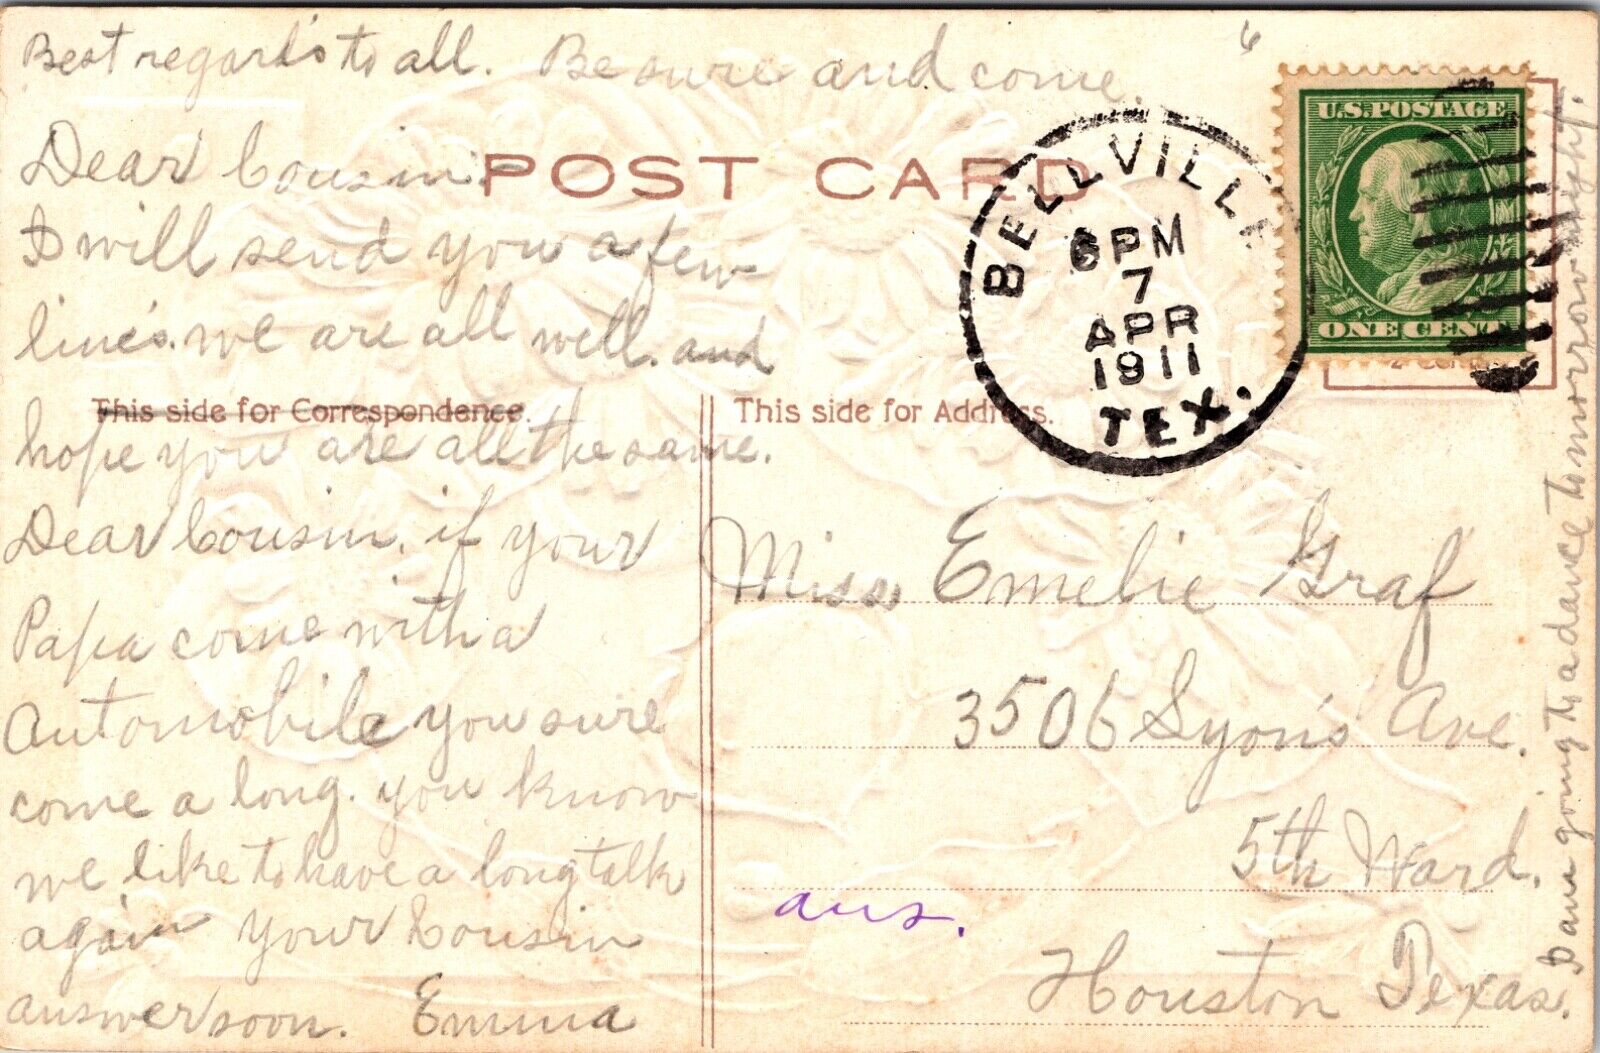 Best regards to all. Be sure and come.
6
POST CARD
Dear Cousin.
I will send you a few
lines. we are all well. and
This side for Correspondence.
hope you are all the same.
Dear Cousin, if your
Papa come with a
Automobile you sure
come a long. you know
we like to have a long talk
again your Cousin
answer soon. Emma
BELLVILLE
6 PM
7
APR
1911
TEX.
U.S. POSTAGE
ONE CENT
This side for Address.
Miss Emelie Graf
3506 Lyons Ave.
5th Ward.
ans.
Houston Texas.
I am going to a dance tomorrow night.